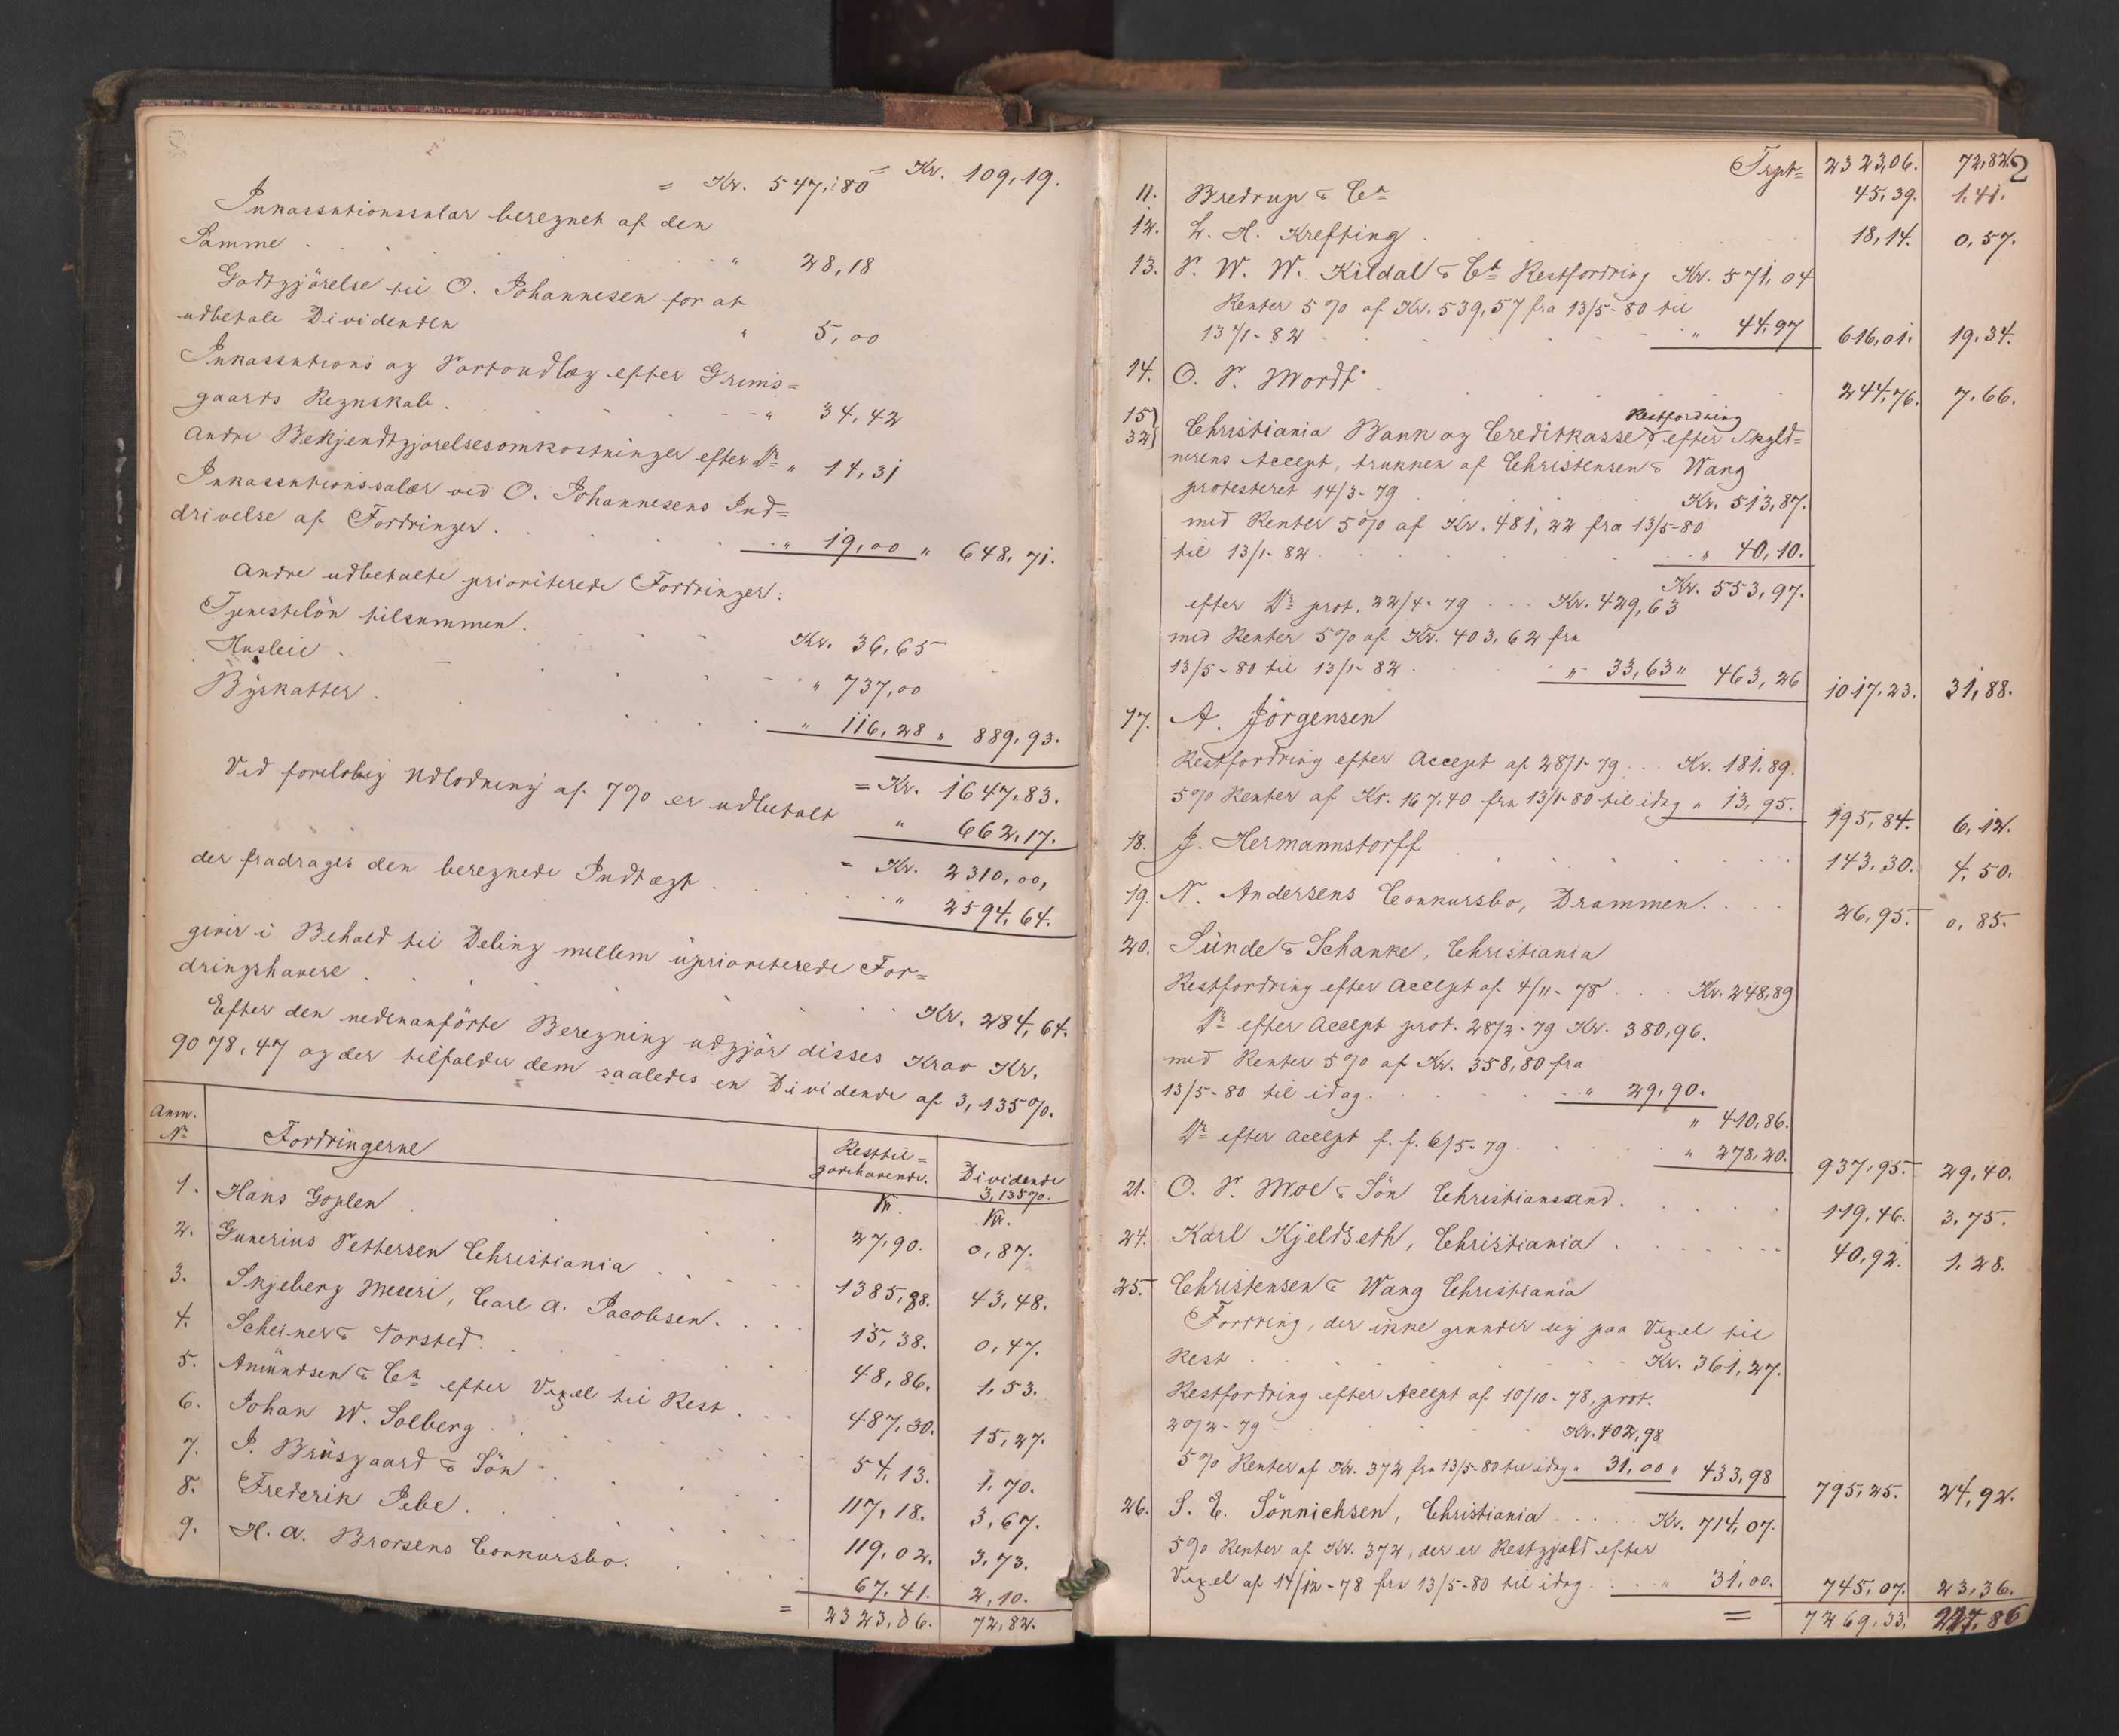 = Kr. 547,80 = Kr. 109,19.
Inkassationssalær beregnet af den
Samme . . . " 28,18
Godtgjörelse til O. Johannesen for at
udbetale Dividenden " 5,00
Inkassations og Portoudlæg efter Grims=
gaards Regnskab . . . " 34,42
Andre Bekjendtgjørelsesomkostninger efter Do " 14,31
Inkassationssalær ved O. Johannesens Ind=
drivelse af Fordringer . . . " 19,00 " 648,71.
Andre udbetalte prioriterede Fordringer:
Tjenestelön tilsammen . . . Kr. 36,65
Husleie . . . " 737,00
Byskatter . . . " 116,28 " 889,93.
= Kr. 1647,83.
Ved foreløbig Udlodning af 7% er udbetalt " 662,17.
= Kr. 2310,00,
der fradrages den beregnede Indtægt . . . " 2594,64.
giver i Behold til Deling mellem uprioriterede For=
dringshavere . . . Kr. 284,64.
Efter den nedenanförte Beregning udgjör disses Krav Kr.
9078,47 og der tilfalder dem saaledes en Dividende af 3,135%.
Anm. No Fordringerne Resttil= godehavende. Dividende 3,135%.
Kr. Kr.
1. Hans Goplen . . . 27,90. 0,87.
2. Gunerius Pettersen Christiania . . . 1385,88. 43,48.
3. Skjeberg Meieri, Carl A. Jacobsen . . . 15,38. 0,47.
4. Scheiner & Torsted . . . 48,86. 1,53.
5. Amundsen & Co efter Vexel til Rest . . . 487,30. 15,27.
6. Johan W. Solberg . . . 54,13. 1,70.
7. J. Brüsgaard & Sön . . . 117,18. 3,67.
8. Frederik Pebe . . . 119,02. 3,73.
9. H. A. Brorsens Conkursbo. . . . 67,41. 2,10.
= 2323,06. 72,82.
2
Trpt= 2323,06. 72,82.
11. Bredrup & Co 45,39. 1,41.
12. L. H. Krefting . . . 18,14. 0,57.
13. P. W. W. Kildal & Co Restfordring Kr. 571,04
Renter 5% af Kr. 539,57 fra 13/5-80 til
13/1-82 . . . " 44,97 616,01. 19,34.
14. O. P. Mordt . . . 244,76. 7,66.
15) 32) Christiania Bank og Creditkasse Restfordring efter Skyld=
nerens Accept, trukken af Christensen & Wang
protesteret 14/3-79 . . . Kr. 513,87.
med Renter 5% af Kr. 481,22 fra 13/5-80
til 13/1-82 . . . " 40,10.
Kr. 553,97.
efter Do prot. 22/4-79 . . . Kr. 429,63
med Renter 5% af Kr. 403,62 fra
13/5-80 til 13/1-82 . . . " 33,63 " 463,26 1017,23. 31,88.
17. A. Jörgensen
Restfordring efter Accept af 28/1-79 . . . Kr. 181,89.
5% Renter af Kr. 167,40 fra 13/1-80 til idag " 13,95. 195,84. 6,12.
18. J. Hermannstorff . . . 143,30. 4,50.
19. N. Andersens Conkursbo, Drammen . . . 26,95. 0,85.
20. Sünde & Schanke, Christiania
Restfordring efter Accept af 4/11-78 . . . Kr. 248,89
Do efter Accept prot. 28/2-79 Kr. 380,96.
med Renter 5% af Kr. 358,80 fra
13/5-80 til idag . . . " 29,90.
" 410,86.
Do efter Accept f. f. 6/5-79 . . . " 278,20. 937,95. 29,40.
21. O. P. Moe & Sön Christiansand . . . 119,46. 3,75.
24. Karl Kjeldseth, Christiania . . . 40,92. 1,28.
25. Christensen & Wang Christiania
Fordring, der ikke grunder sig paa Vexel til
Rest . . . Kr. 361,27.
Restfordring efter Accept af 10/10-78, prot.
20/2-79 . . . Kr. 402,98
5% Renter af Kr. 372 fra 13/5-80 til idag " 31,00 " 433,98 795,25. 24,92.
26. S. E. Sönnichsen, Christiania . . . Kr. 714,07.
5% Renter af Kr. 372, der er Restgjæld efter
Vexel af 14/12-78 fra 13/5-80 til idag . . . " 31,00. 745,07. 23,36.
= 7269,33. 227,86